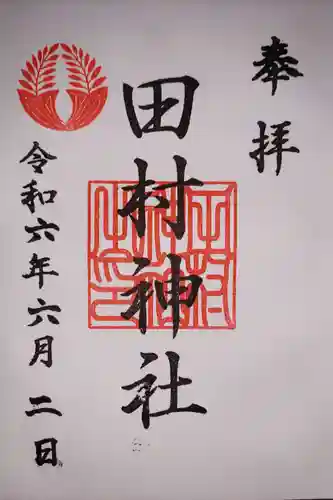 奉拝
田村神社
令和六年六月二日